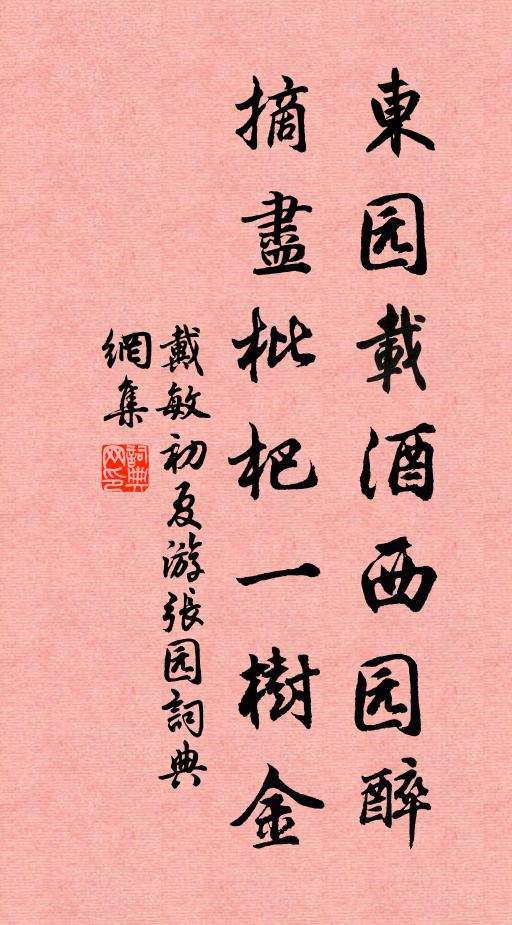 東园載酒西园醉
摘盡枇杷一樹金
戴敏初夏游張园詞典
網集
詞典网印